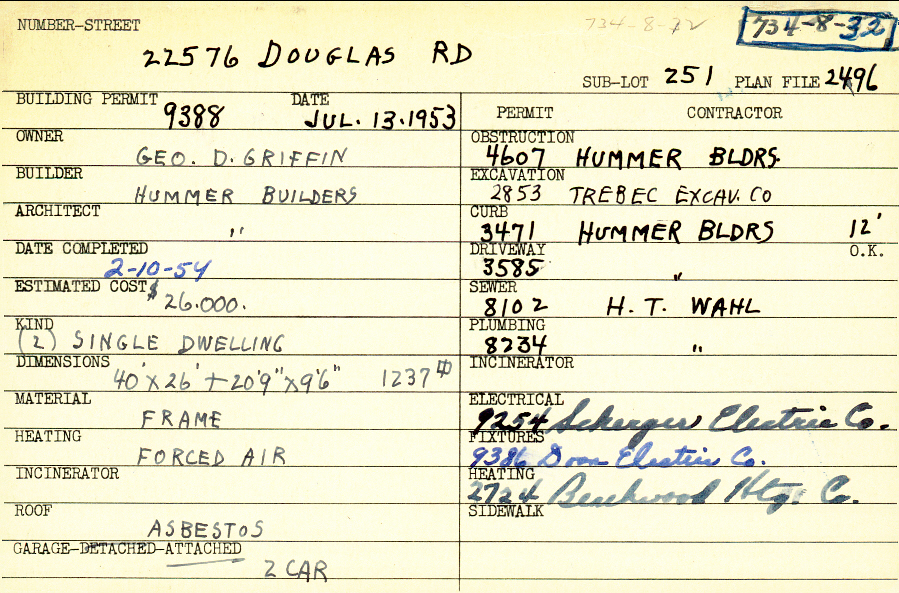 NUMBER-STREET 734-8-32 734-8-32
22576 DOUGLAS RD
SUB-LOT 251 PLAN FILE 2496
BUILDING PERMIT 9388 DATE JUL. 13.1953
OWNER GEO. D. GRIFFIN
BUILDER HUMMER BUILDERS
ARCHITECT "
DATE COMPLETED 2-10-54
ESTIMATED COST $26.000.
KIND (2) SINGLE DWELLING
DIMENSIONS 40'X26'+20'9"X9'6" 1237
MATERIAL FRAME
HEATING FORCED AIR
INCINERATOR
ROOF ASBESTOS
GARAGE-DETACHED-ATTACHED 2 CAR
PERMIT CONTRACTOR
OBSTRUCTION 4607 HUMMER BLDRS.
EXCAVATION 2853 TREBEC EXCAV. CO
CURB 3471 HUMMER BLDRS 12'
DRIVEWAY 3585 " O.K.
SEWER 8102 H. T. WAHL
PLUMBING 8234 "
INCINERATOR
ELECTRICAL 9254 Scherger Electric Co.
FIXTURES 9386 Electric Co.
HEATING 2724 Beechwood Htg. Co.
SIDEWALK